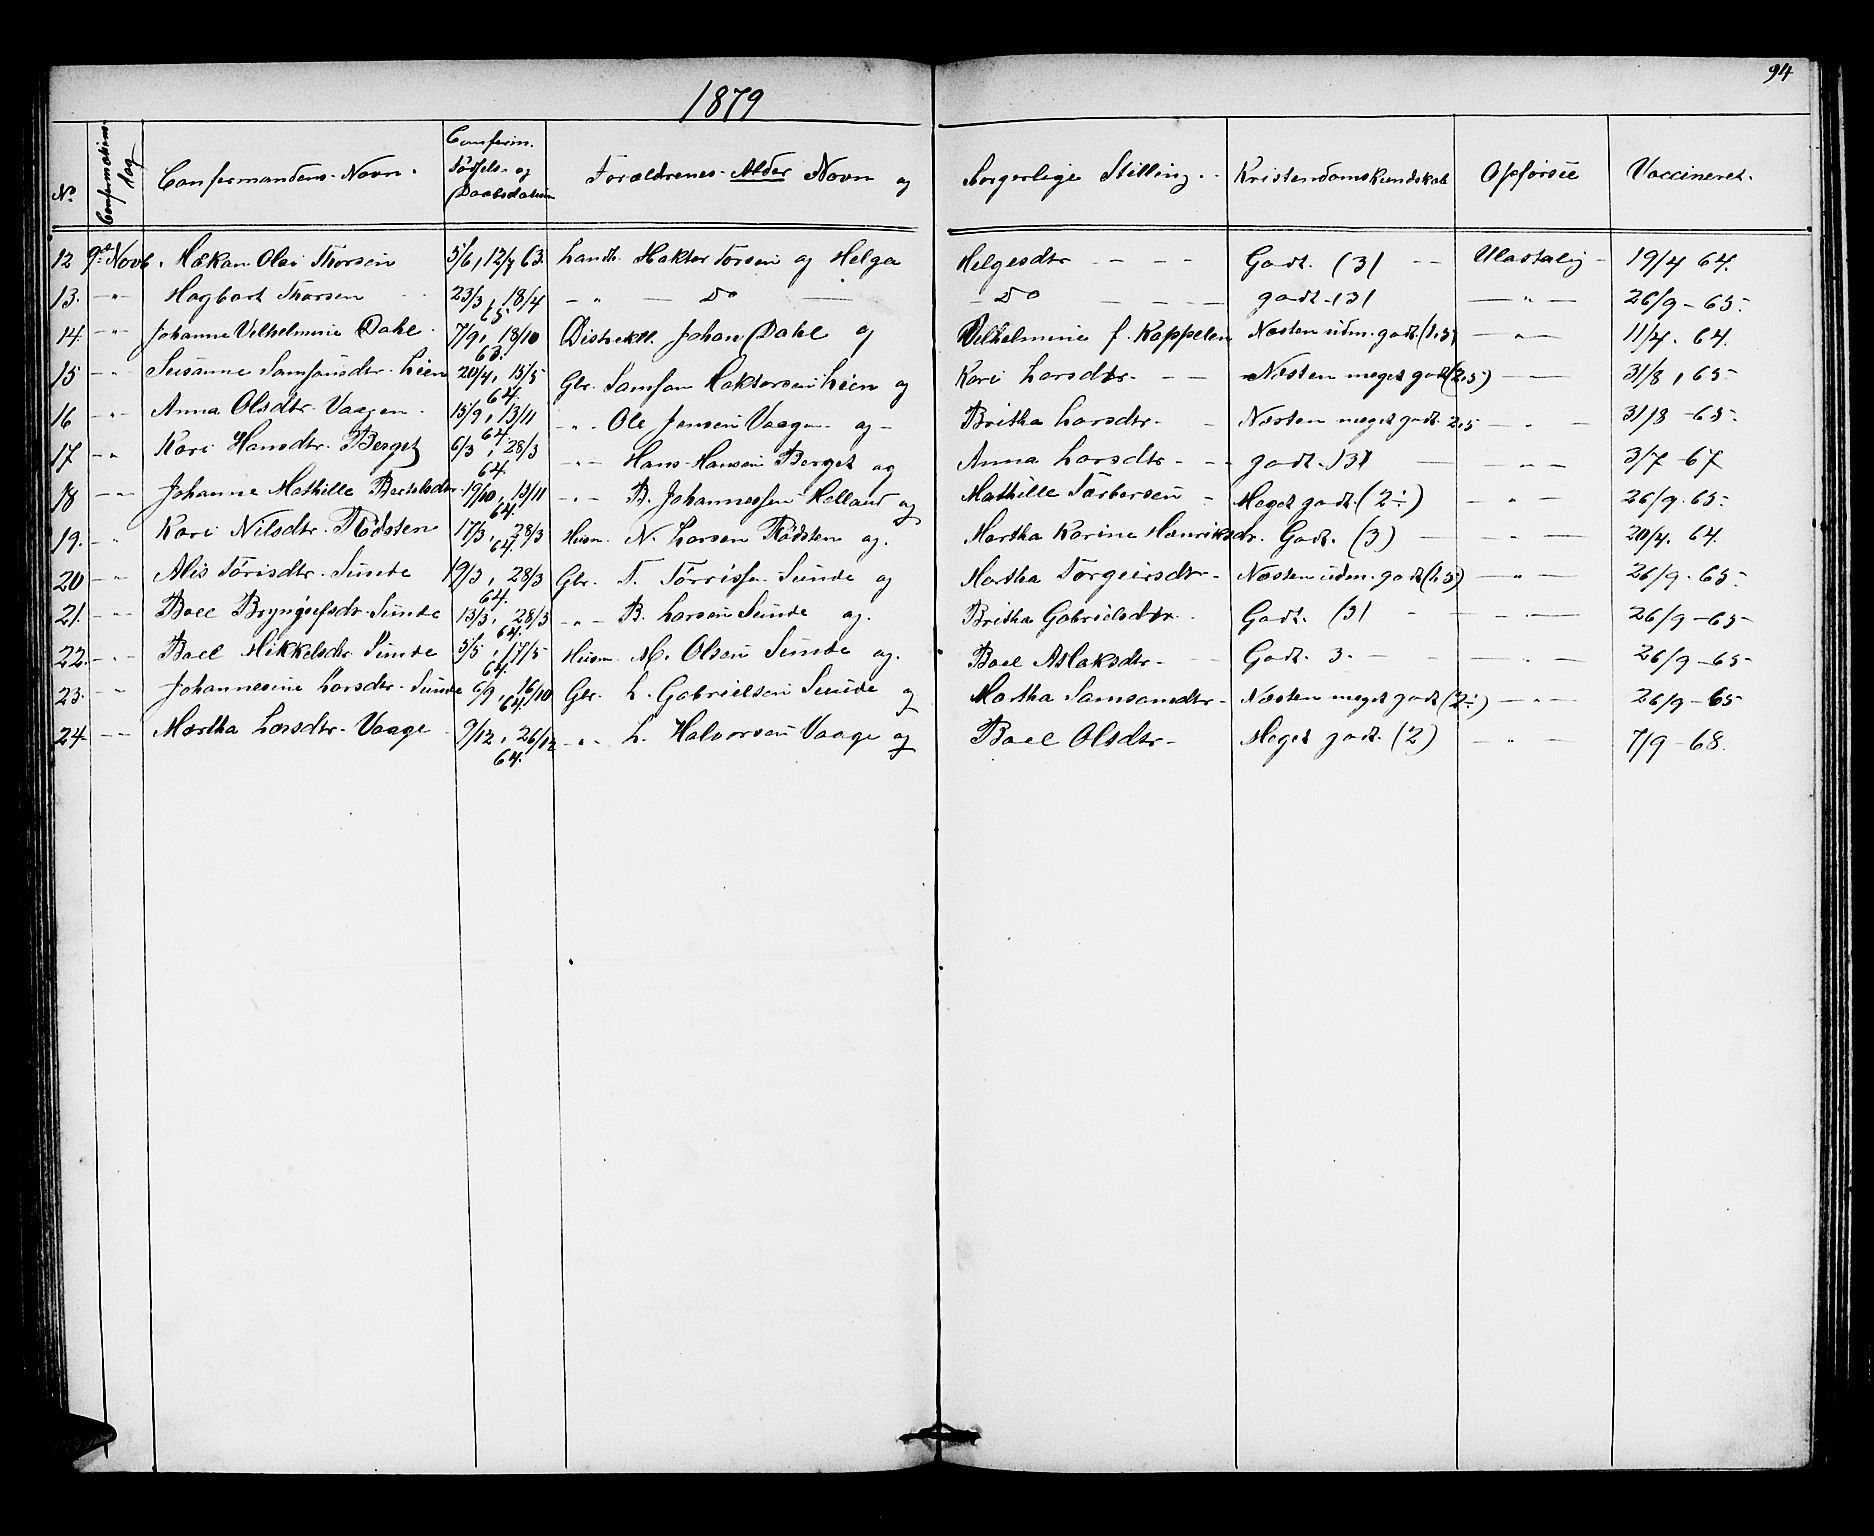 94
1879
No. Confirmations-dag Confirmandens Navn. Confirm. Fødsels- og Daabsdatum Forældrenes Alder Navn og borgerlige Stilling. Kristendomskundskab Opførsel Vaccineret.
12 9de Novb. Hækan Olai Thorsen 5/6, 12/7 63. Landh. Haktor Torsen og Helga Helgesdtr - - - Godt. (3) - - Ulastelig - 19/4 64.
13. - " - Hagbart Thorsen 23/3, 18/4 65. - " - Do - - Do - - - godt (3) - " - 26/9 - 65.
14. - " - Johanne Vilhelmine Dahl. 7/9, 18/10 63. Distriktl. Johan Dahl og Vilhelmine f. Kappelen Næsten udm. godt (1,5) - " - 11/4. 64.
15 - " - Susanne Samsonsdtr. Lien 20/4, 15/5 64. Gbr. Samson Haktorsen Lien og Kari Larsdtr. - - Næsten meget godt (2,5) - " - 31/8, 65-
16 - " - Anna Olsdtr. Vaagen. 15/9, 13/11 64. - " - Ole Jensen Vaagen og - Britha Larsdtr. - Næsten meget godt. 2,5 - " - 31/8 - 65-
17 - " Kari Hansdtr. Berget 6/3, 28/3 64. - " - Hans Hansen Berget og Anna Larsdtr. - - godt. (3) - - " - 3/7 - 67
18 - " - Johanne Mathille Bertelsdtr. 19/10, 13/11 64. - " - B. Johannessen Helland og Mathille Torbersen - Meget godt. (2÷) - " - 26/9. 65-
19. " Kari Nilsdtr. Rødsten 17/3, 28/3 64. Husm. N. Larsen Rødsten og. Martha Karine Henriksdr. Godt. (3) - - " - 20/4. 64.
20 - " - Alis Tørisdtr. Sunde 19/3, 28/3 64. Gbr. T. Tørrissen Sunde og Martha Torgeirsdtr. - Næsten udm. godt (1,5) - " - 26/9. 65-
21. - " - Boel Bryngelsdr. Sunde 13/3, 28/3 64. - " - B. Larsen Sunde og. Britha Gabrielsdtr. Godt. (3) - - " - 26/9 - 65-
22. - " - Boel Mikkelsdtr. Sunde 5/5, 17/5 64. Husm. M. Olsen Sunde og. Boel Aslaksdtr. - Godt. 3. - - " - 26/9 - 65-
23. - " - Johannesine Larsdtr. Sunde 6/9, 16/10 64. Gbr. L. Gabrielsen Sunde og Martha Samsonsdtr. - Næsten meget godt (2÷) - " - 26/9 - 65
24 - " - Martha Larsdtr. Vaage 9/12, 26/12 64. - " - L. Halvorsen Vaage og Boel Olsdtr. - Meget godt. (2) - " - 7/9 - 68.